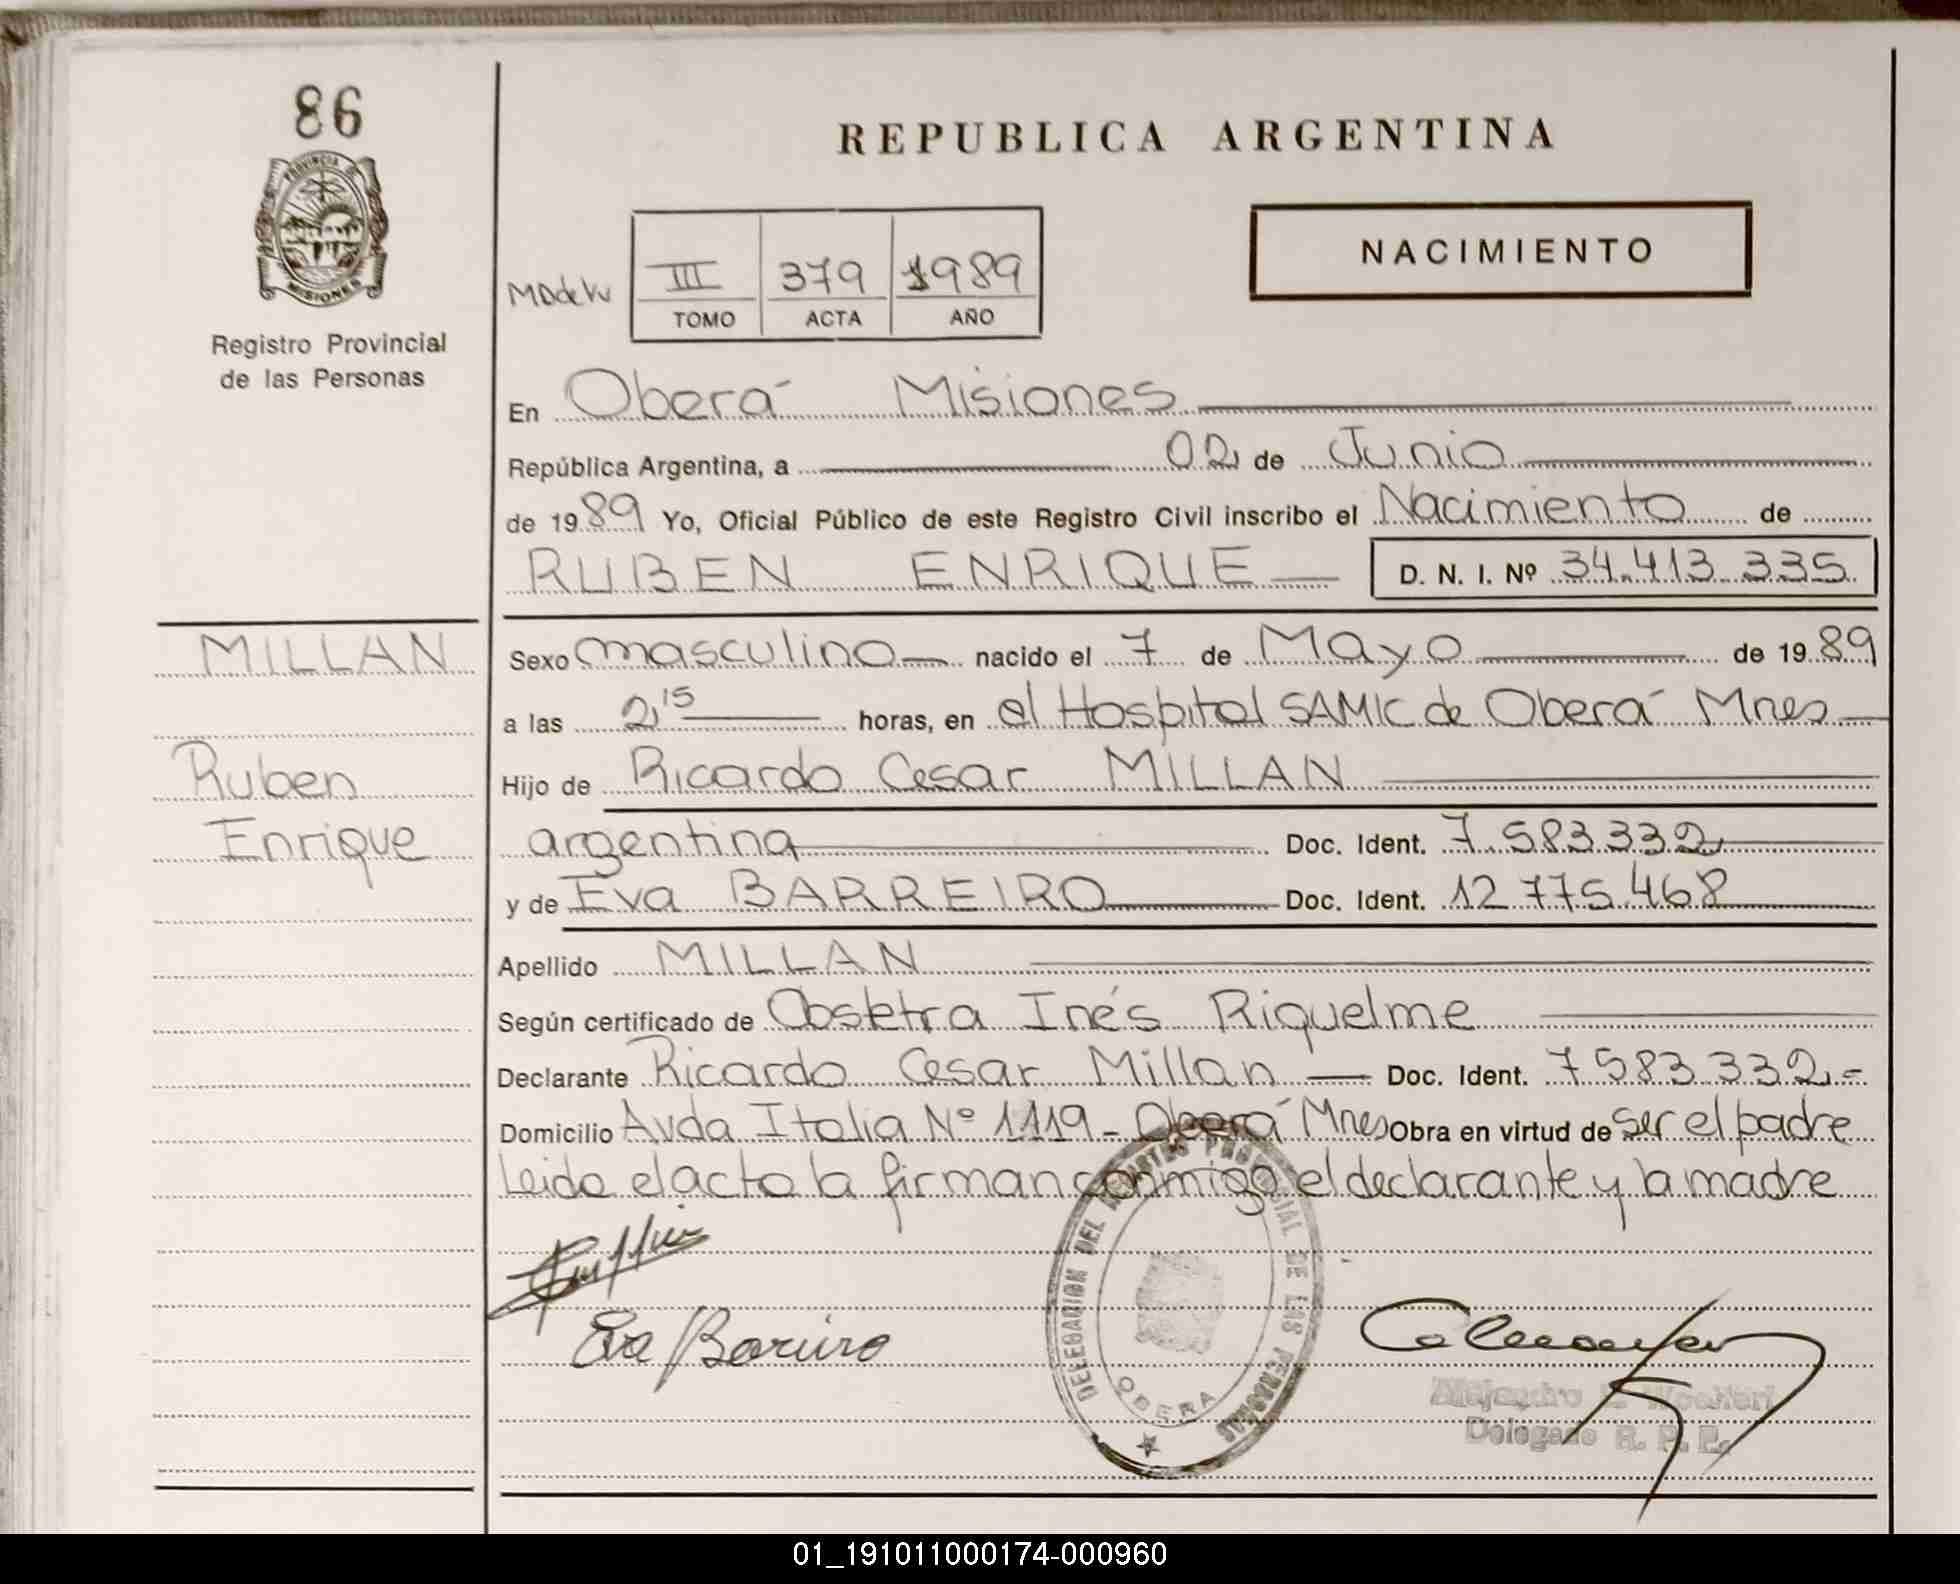 86
PROVINCIA DE
MISIONES
Registro Provincial
de las Personas
REPUBLICA ARGENTINA
NACIMIENTO
III 379 1989
TOMO ACTA AÑO
En Oberá Misiones
República Argentina, a 02 de Junio
de 1989 Yo, Oficial Público de este Registro Civil inscribo el Nacimiento de
RUBEN ENRIQUE D. N. I. Nº 34.413.335
MILLAN
Ruben
Enrique
Sexo masculino nacido el 7 de Mayo de 1989
a las 2,15 horas, en el Hospital SAMIC de Oberá Mnes
Hijo de Ricardo Cesar MILLAN
argentina Doc. Ident. 7.583.332
y de Eva BARREIRO Doc. Ident. 12.775.468
Apellido MILLAN
Según certificado de Obstetra Inés Riquelme
Declarante Ricardo Cesar Millan Doc. Ident. 7.583.332.-
Domicilio Avda Italia Nº 1119 - Oberá Mnes Obra en virtud de ser el padre
Leida el acta la firman conmigo el declarante y la madre
Eva Barreiro
DELEGACION DEL DE LAS PERSONAS
OBERA
Alejandro
Delegado R. P. P.
01_191011000174-000960